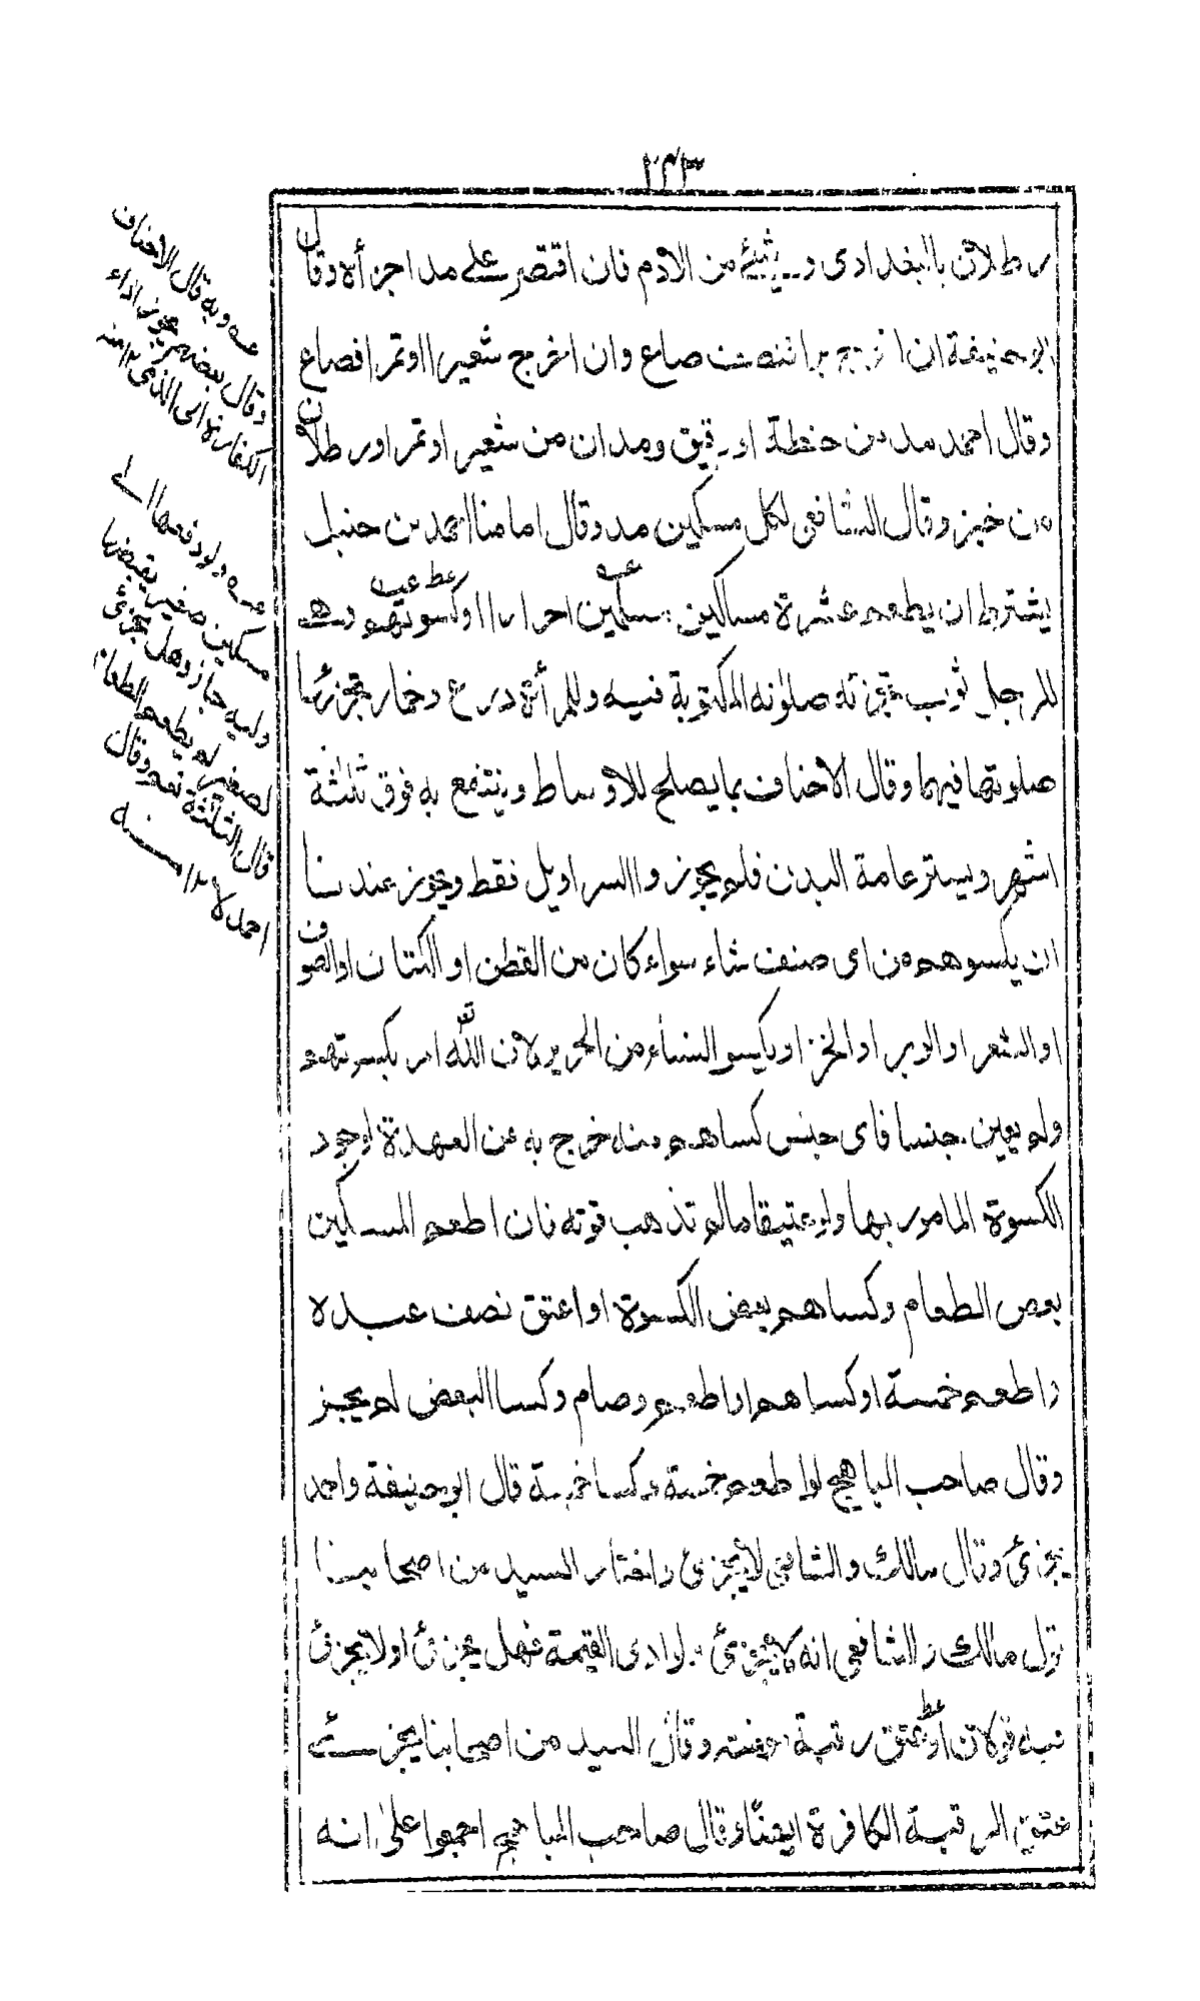 ٢٤٣
رطلان بالبغدادى وشئ من الادم فان اقتصر على مد اجزأه وقال
ابو حنيفة ان اخرج برا فنصف صاع وان اخرج شعيرا اوتمرا فصاع
وقال احمد مد من حنطة او رقيق ومدان من شعير اوتمر اورطلان
من خبز وقال الشافعى لكل مسكين مد وقال امامنا احمد بن حنبل
يشترط ان يطعم عشرة مساكين مسلمين احرارا اوكسوتهم وهى
للرجل ثوب تجزئه صلوٰته المكتوبة فيه وللمرأة درع وخمار تجزئها
صلوتها فيهما وقال الاحناف بما يصلح للاوساط وينتفع به فوق ثلثة
اشهر ويستر عامة البدن فلم يجوزوا السراويل فقط ويجوز عندنا
ان يكسوهم من اى صنف شاء سواء كان من القطن او الكتان اوالصوف
اوالشعر اوالوبر اوالخز اويكسو النساء من الحرير لان الله تع امر بكسوتهم
ولم يعين جنسا فاى جنس كساهم منه خرج به عن العهدة لوجود
الكسوة المامور بها ولو عتيقا مالم تذهب قوته فان اطعم المسكين
بعض الطعام وكساهم بعض الكسوة او اعتق نصف عبده
واطعم خمسة اوكساهم او اطعم وصام وكسا البعض لم يجز
وقال صاحب المباهج لو اطعم خمسة وكسا خمسة قال ابوحنيفة واحمد
يجزئ وقال مالك والشافعى لا يجزئ واختار السيد من اصحابنا
قول مالك والشافعى انه لا يجزئ ولو ادى القيمة فهل يجزئ اولا يجزئ
فيه قولان او عتق رقبة مؤمنة وقال السيد من اصحابنا يجزئ
عتق الرقبة الكافرة ايضا وقال صاحب المباهج اجمعوا على انه
عــه وبه قال الاحناف
وقال بعضهم يجوز اداء
الكفارة الى الذمى ١٢ منه
عــه ولو دفعها الى
مسكين صغير يقبضها
وليه جاز وهل يجزئ
لصغير لم يطعم الطعام
قال الثلثة نعم وقال
احمد لا ١٢ منه